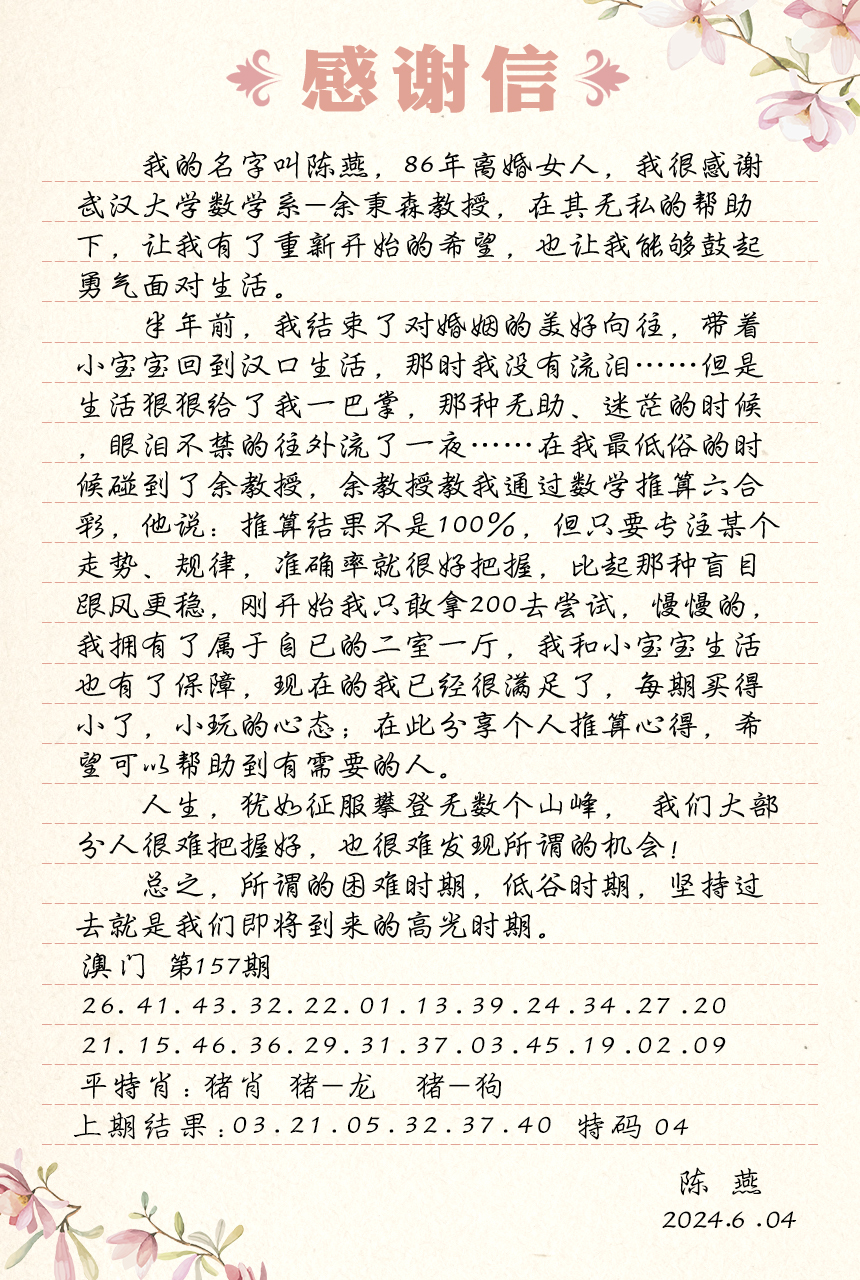 感谢信
我的名字叫陈燕，86年离婚女人，我很感谢
武汉大学数学系—余秉森教授，在其无私的帮助
下，让我有了重新开始的希望，也让我能够鼓起
勇气面对生活。
半年前，我结束了对婚姻的美好向往，带着
小宝宝回到汉口生活，那时我没有流泪……但是
生活狠狠给了我一巴掌，那种无助、迷茫的时候
，眼泪不禁的往外流了一夜……在我最低俗的时
候碰到了余教授，余教授教我通过数学推算六合
彩，他说：推算结果不是100%，但只要专注某个
走势、规律，准确率就很好把握，比起那种盲目
跟风更稳，刚开始我只敢拿200去尝试，慢慢的，
我拥有了属于自已的二室一厅，我和小宝宝生活
也有了保障，现在的我已经很满足了，每期买得
小了，小玩的心态；在此分享个人推算心得，希
望可以帮助到有需要的人。
人生，犹如征服攀登无数个山峰， 我们大部
分人很难把握好，也很难发现所谓的机会！
总之，所谓的困难时期，低谷时期，坚持过
去就是我们即将到来的高光时期。
澳门 第157期
26.41.43.32.22.01.13.39.24.34.27.20
21.15.46.36.29.31.37.03.45.19.02.09
平特肖：猪肖 猪—龙 猪—狗
上期结果：03.21.05.32.37.40 特码 04
陈 燕
2024.6.04